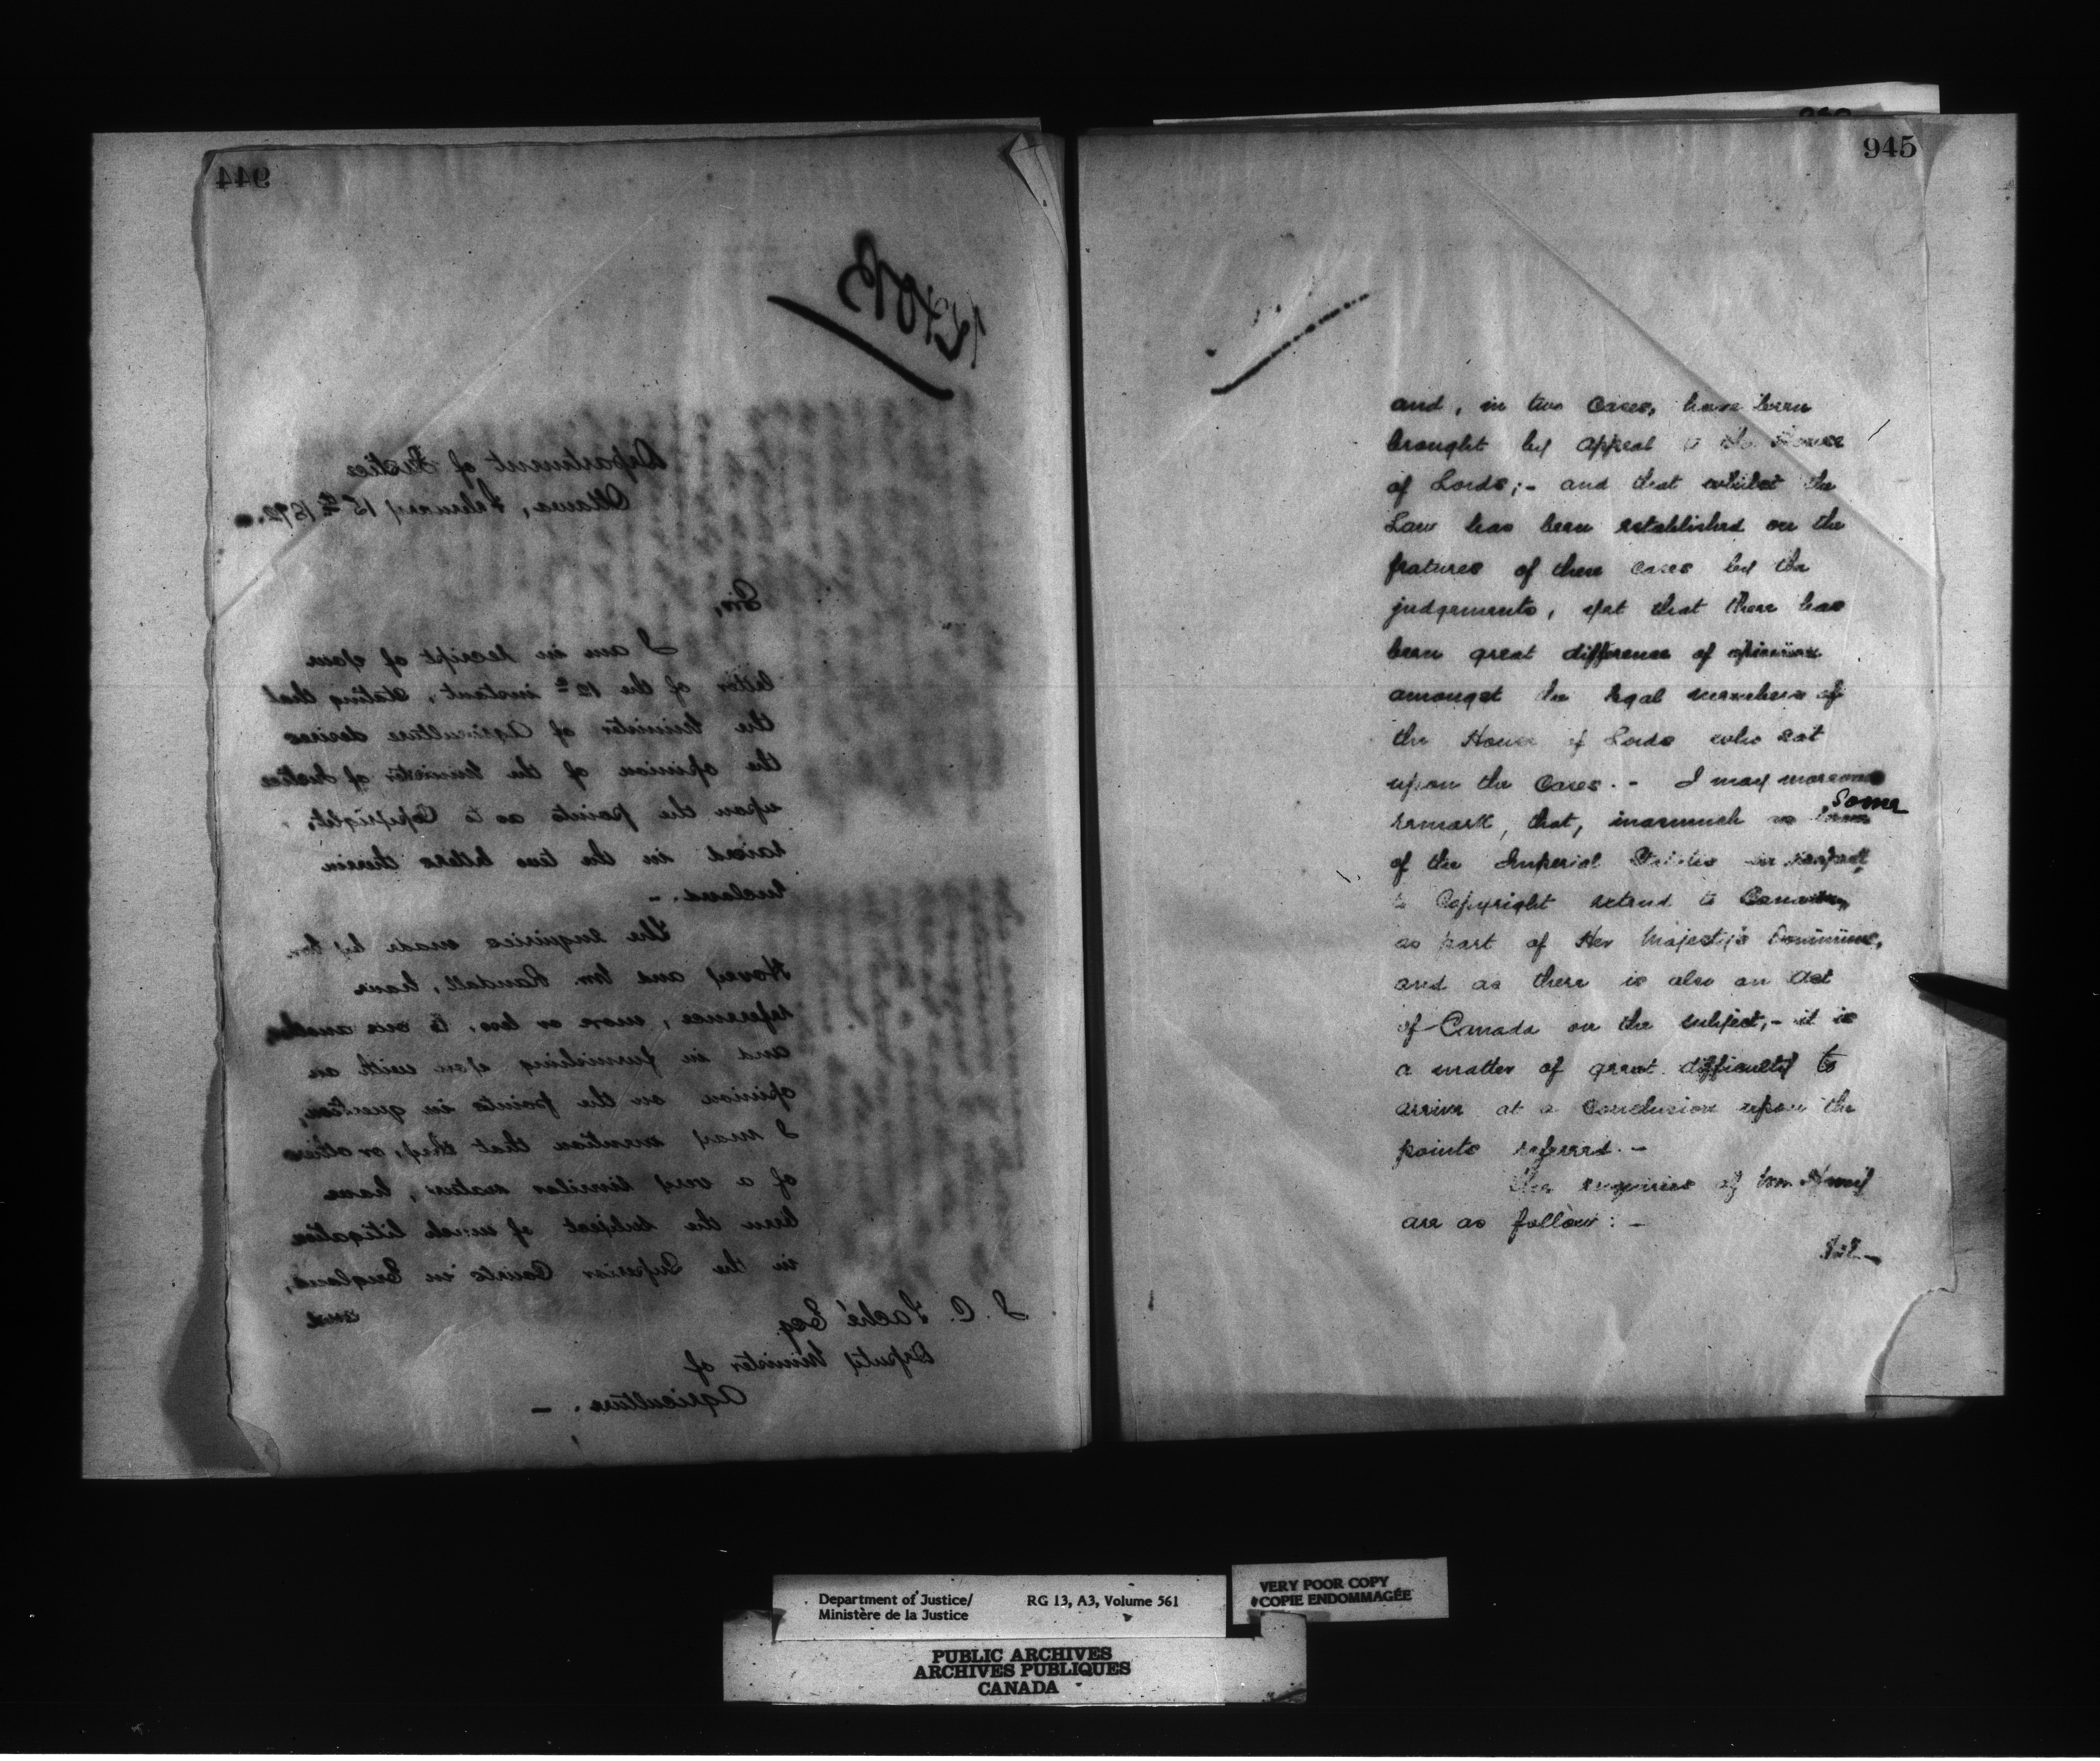 944
Department of Justice
Ottawa, February 15th 1872.
Sir,
I am in receipt of your
letter of the 12th instant, stating that
the Minister of Agriculture desires
the opinion of the Minister of Justice
upon the points as to Copyright,
raised in the two letters therein
enclosed. -
The enquiries made by Mr.
Hovey and Mr. Randall, have
reference, more or less, to one another,
and in furnishing you with an
opinion on the points in question,
I may mention that they, or others
of a very similar nature, have
been the subject of much litigation
in the Superior Courts in England,
and
J. C. Taché Esq
Deputy Minister of
Agriculture. -
945
and, in two Cases, have been
brought by appeal to the House
of Lords; - and that whilst the
Law has been established on the
features of these Cases by the
judgements, yet that there has
been great difference of opinion
amongst the legal members of
the House of Lords who sat
upon the Cases. - I may moreover
remark, that, inasmuch as some
of the Imperial Statutes in respect
to Copyright extend to Canada,
as part of Her Majesty's Dominions,
and as there is also an Act
of Canada on the subject, - it is
a matter of great difficulty to
arrive at a Conclusion upon the
points referred. -
The enquiries of Mr. Hovey
are as follow: -
1st. -
Department of Justice/
Ministère de la Justice
RG 13, A3, Volume 561
VERY POOR COPY
COPIE ENDOMMAGÉE
PUBLIC ARCHIVES
ARCHIVES PUBLIQUES
CANADA